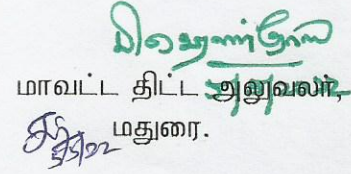 மாவட்ட திட்ட அலுவலர்,
மதுரை.